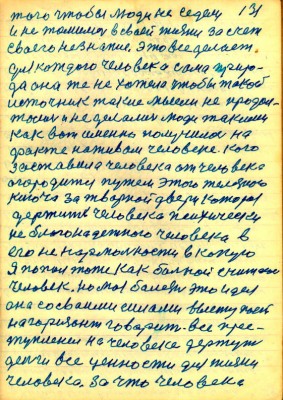 131
того чтобы люди не седели
и не томились в своей жизни за счет
своего незнание. Это все делает
для каждого человека сама приро-
да она же не хотела чтобы такой
источник такие мысли не продол-
жались и не делались люди такими
как вот именно получилось на
факте на живом человеке. кого
заставила человека от человека
огородится путем этого железного
ключа за творной двери которая
держит человека психически
не благонадежного человека в
его не нармолности в какую
Я попал тоже как болной считаюсь
человек. но моя болезнь это идея
она со своими силами выступает
на горизонт говорит все прес-
тупление на человеке держут
денги все ценности для жизни
человека. За что человека